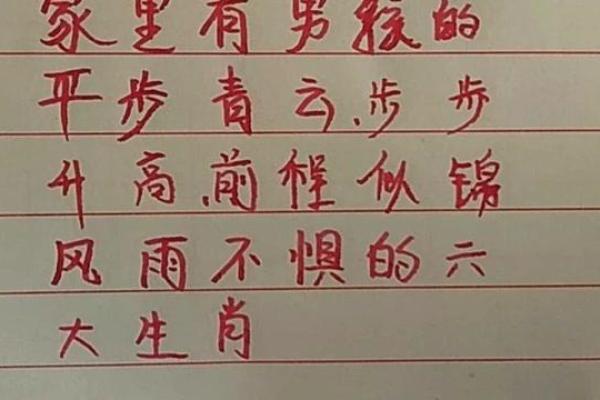 家里有男孩的
平步青云、步步
升高、前程似锦
风雨不惧的六
大生肖